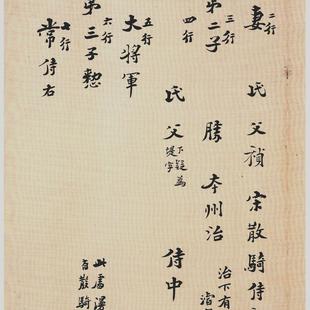 二行
妻　氏　父禎宗散騎侍
三行
第二子　勝　本州治
治下有
四行
氏　父　侍中
下疑為
堤字
五行
大將軍
六行
第三子愁
七行
常侍右
此處漫
右散騎